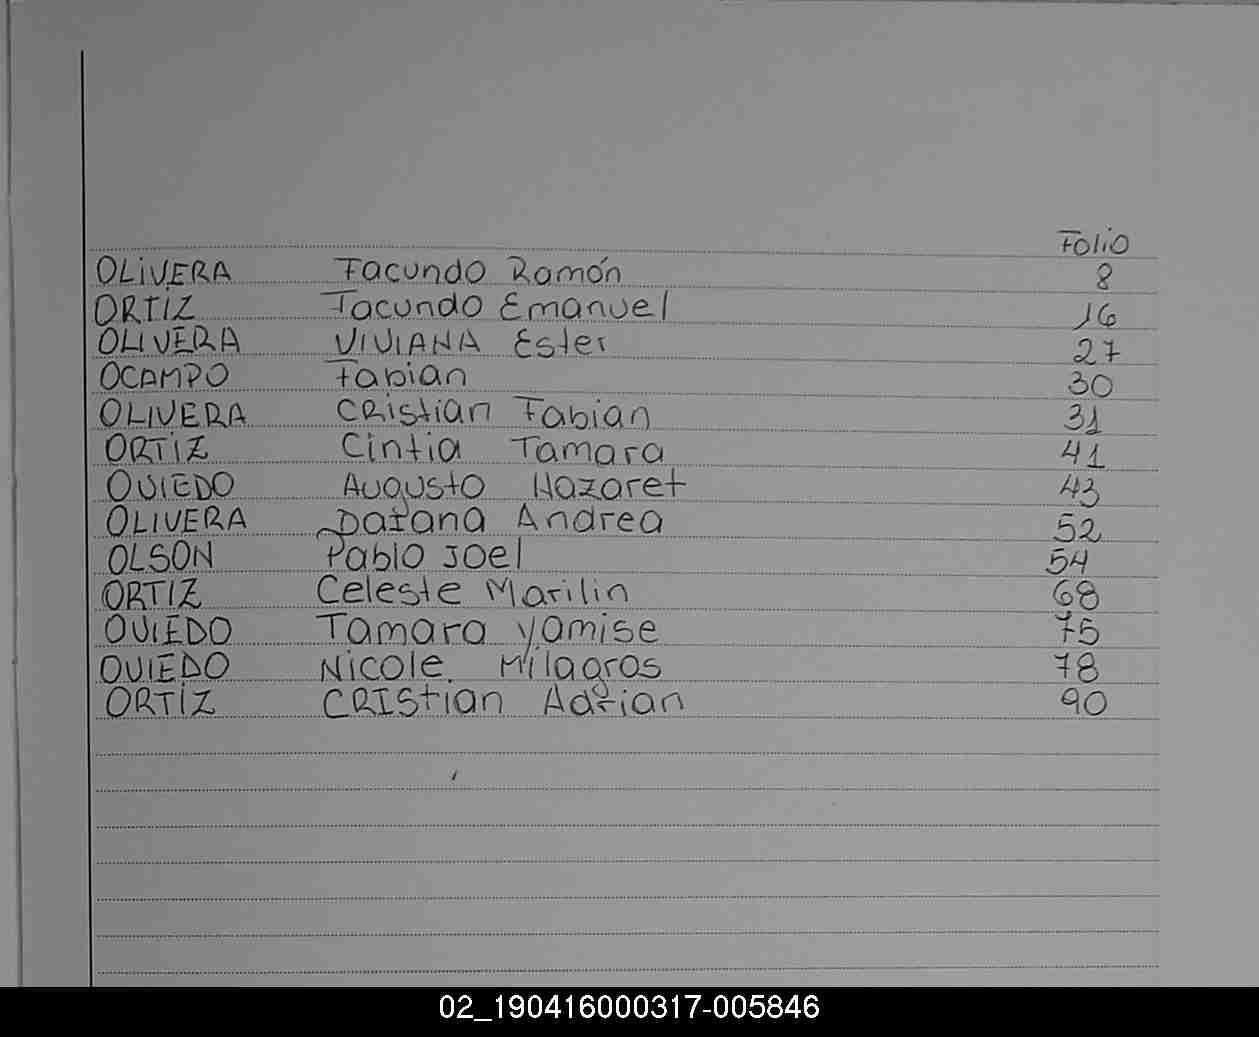 Folio
OLIVERA Facundo Ramón 8
ORTIZ Facundo Emanuel 16
OLIVERA VIVIANA Ester 27
OCAMPO Fabian 30
OLIVERA CRistian Fabian 31
ORTIZ Cintia Tamara 41
OVIEDO Augusto Nazaret 43
OLIVERA Daiana Andrea 52
OLSON Pablo Joel 54
ORTIZ Celeste Marilin 68
OVIEDO Tamara Yamise 75
OVIEDO Nicole. Milagros 78
ORTIZ CRIStian Adrian 90
02_190416000317-005846